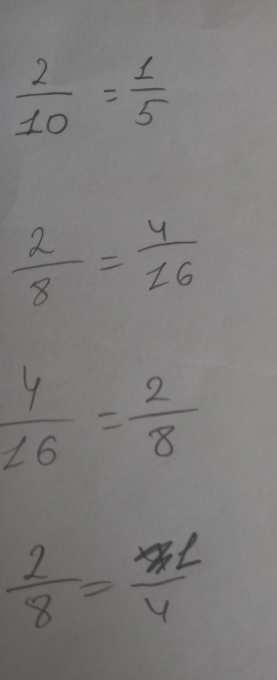 2/10 = 1/5
2/8 = 4/16
4/16 = 2/8
2/8 = 1/4